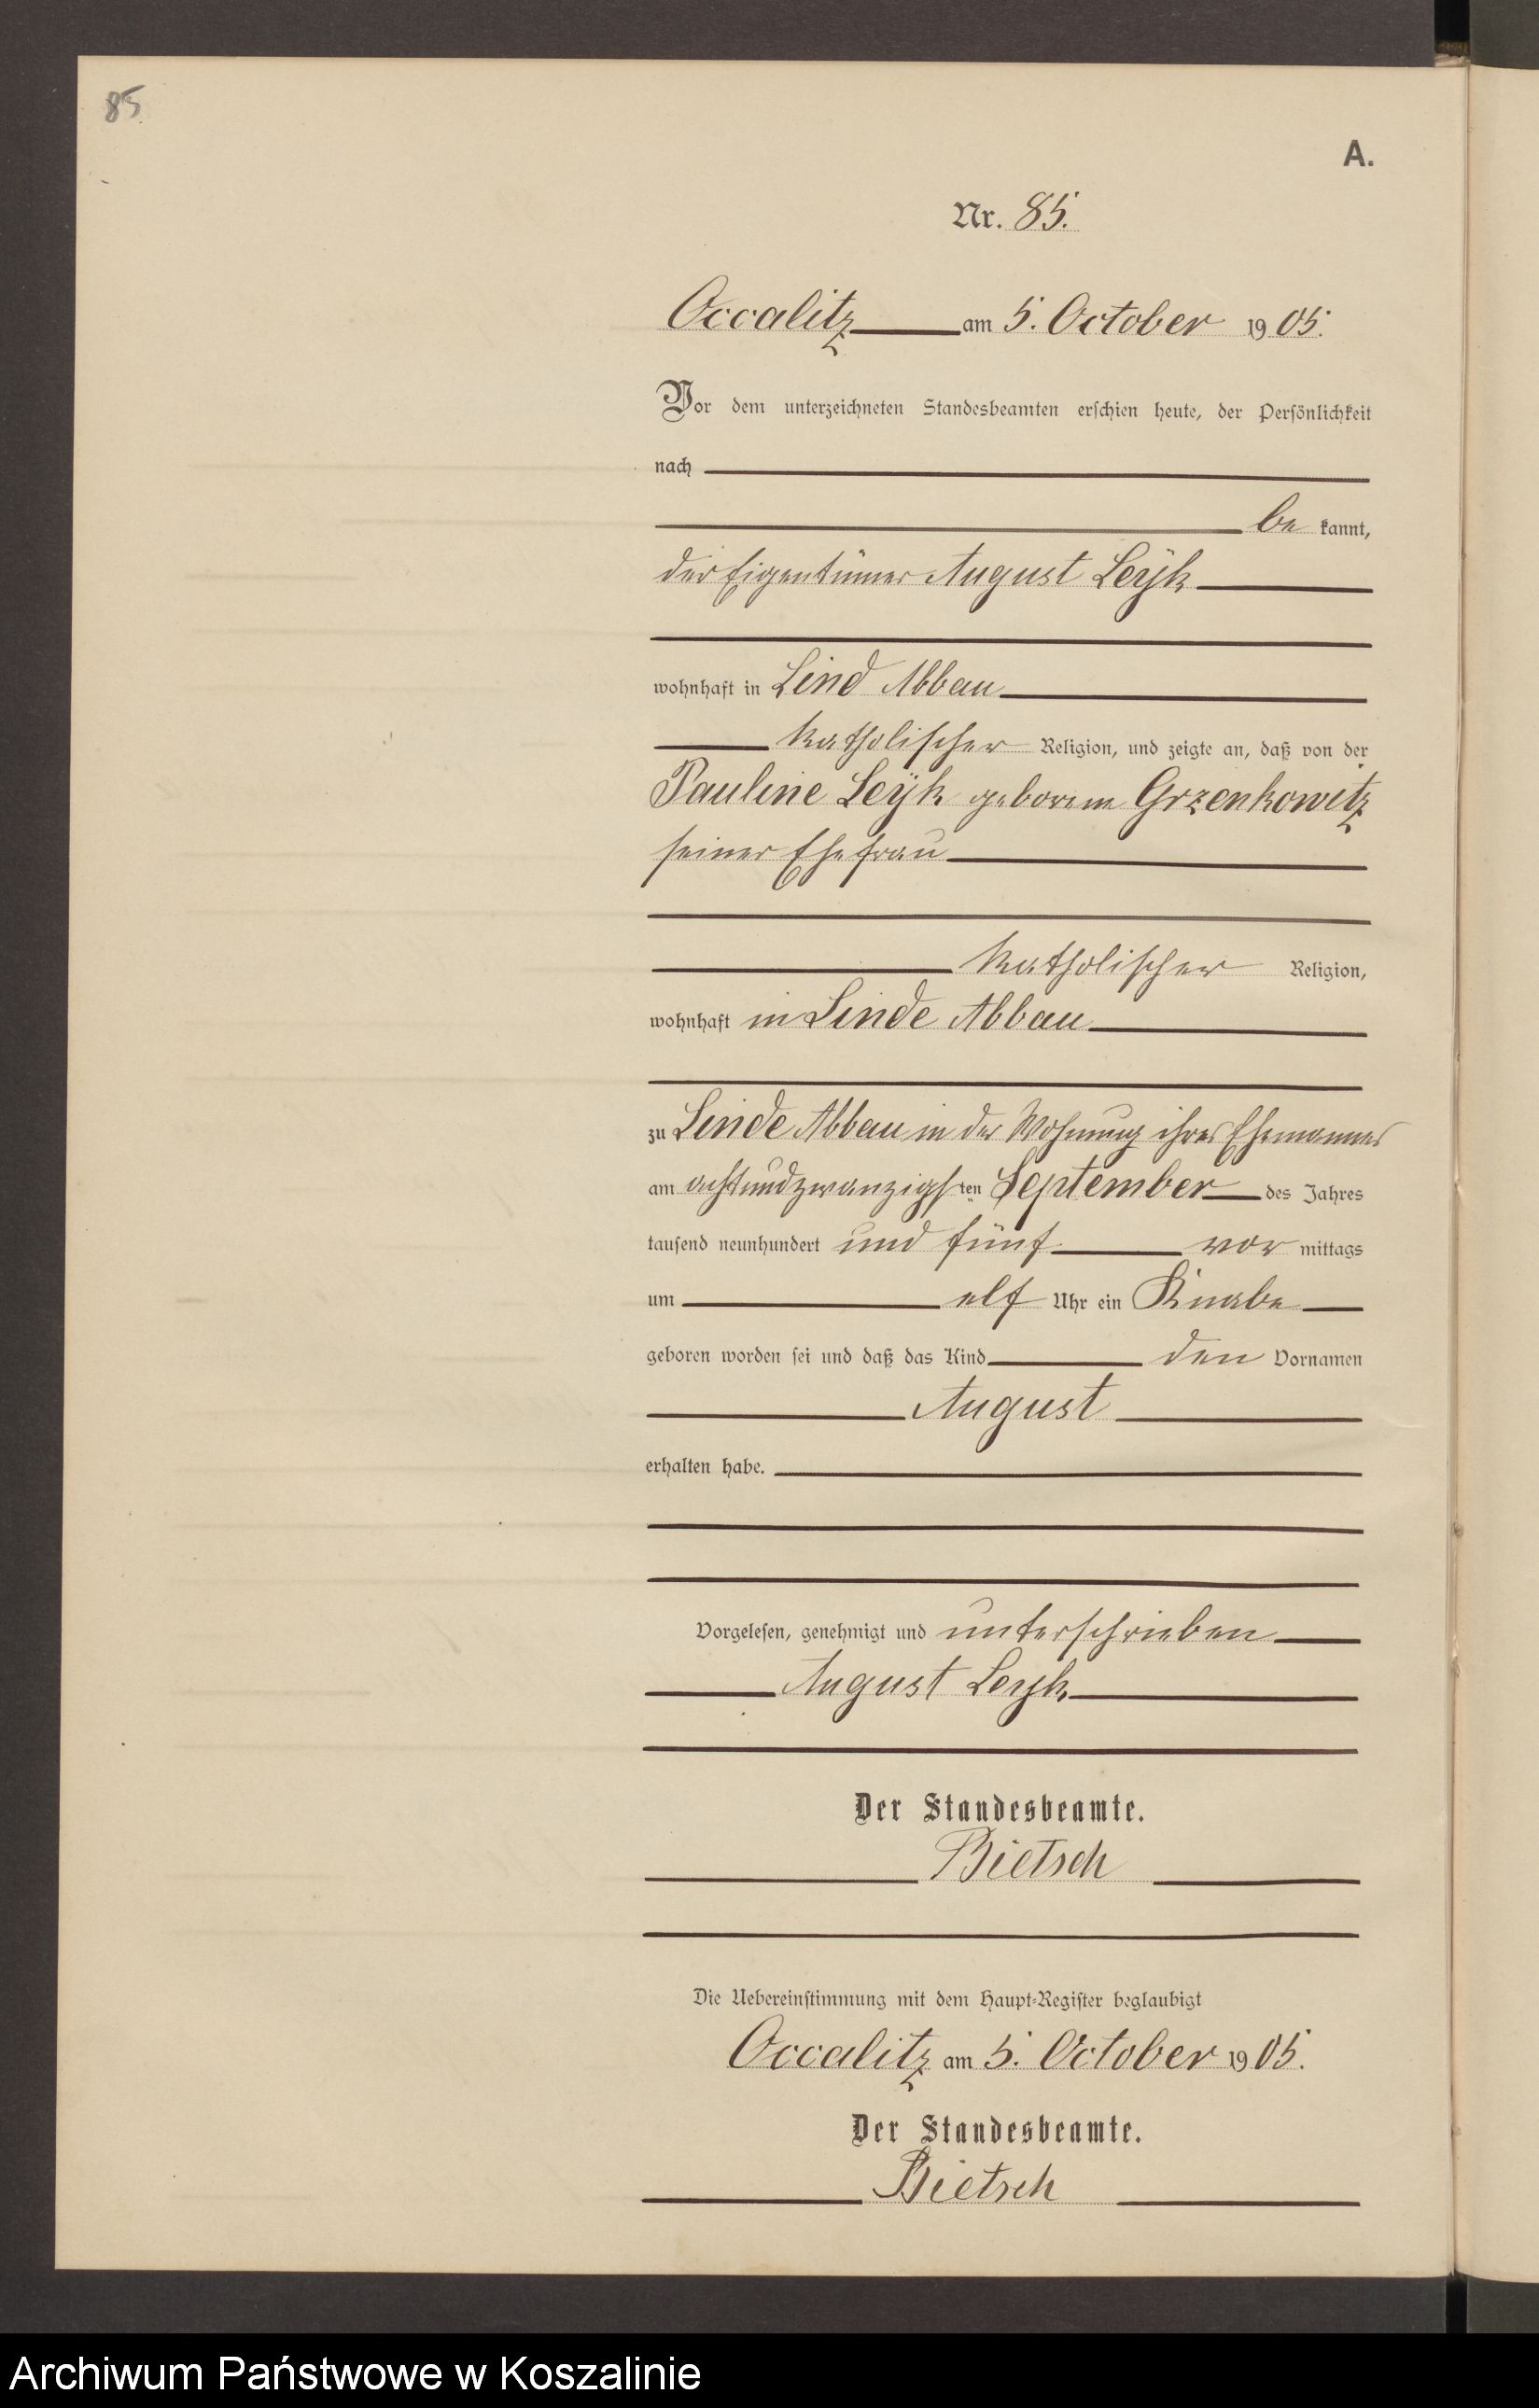 85.
A.
Nr. 85.
Occalitz am 5. October 1905.
Vor dem unterzeichneten Standesbeamten erschien heute, der Persönlichkeit
nach
be kannt,
der Eigentümer August Leÿk
wohnhaft in Lind Abbau
katholischer Religion, und zeigte an, daß von der
Pauline Leÿk geborene Grzenkowitz
seiner Ehefrau
katholischer Religion,
wohnhaft in Linde Abbau
zu Linde Abbau in der Wohnung ihres Ehemannes
am achtundzwanzigsten September des Jahres
tausend neunhundert und fünf vor mittags
um elf Uhr ein Knabe
geboren worden sei und daß das Kind den Vornamen
August
erhalten habe.
Vorgelesen, genehmigt und unterschrieben
August Leyk
Der Standesbeamte.
Bietsch
Die Uebereinstimmung mit dem Haupt-Register beglaubigt
Occalitz am 5. October 1905.
Der Standesbeamte.
Bietsch
Archiwum Państwowe w Koszalinie